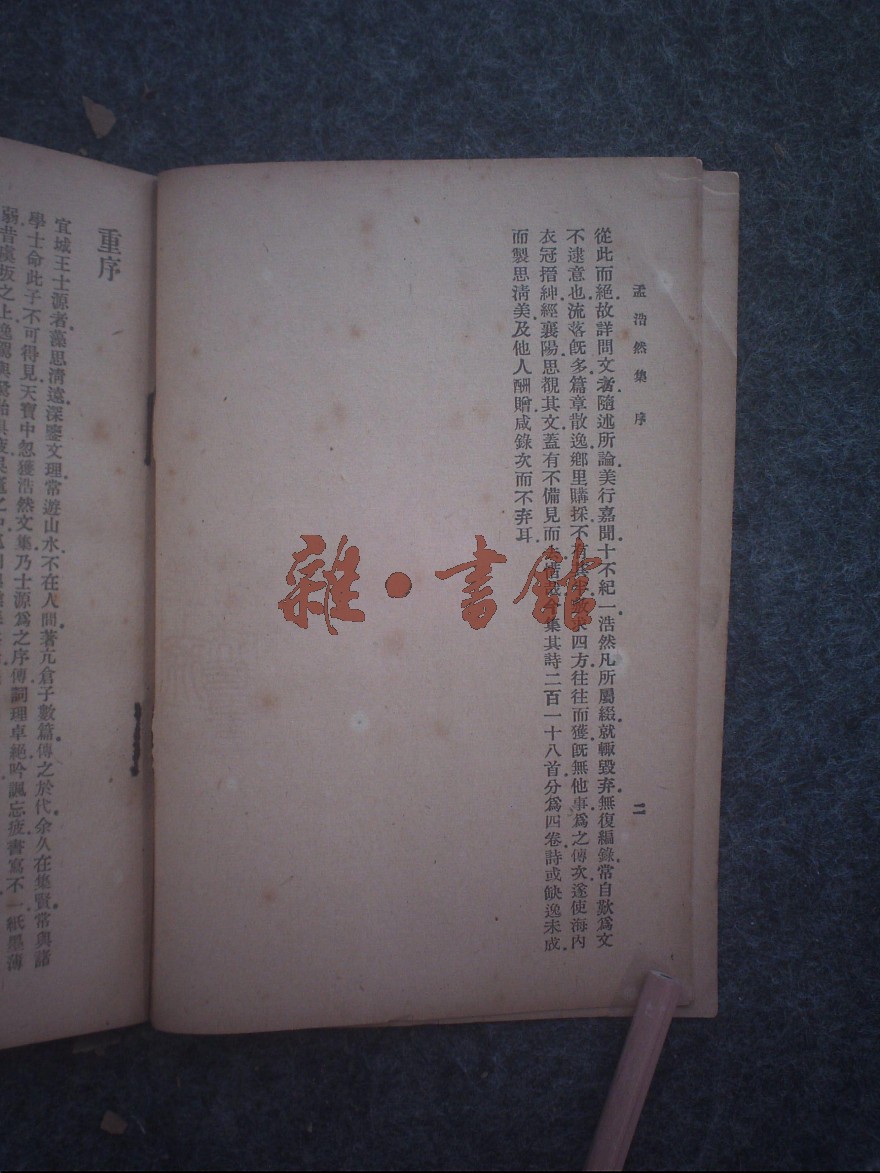 孟浩然集 序 二
從此而絕故詳問文者隨述所論美行嘉聞十不紀一浩然凡所屬綴就輒毀弃無復編錄常自歎爲文
不逮意也流落旣多篇章散逸鄉里購採不有其半敷求四方往往而獲旣無他事爲之傳次遂使海內
衣冠搢紳經襄陽思覩其文蓋有不備見而 集其詩二百一十八首分爲四卷詩或缺逸未成
而製思淸美及他人酬贈咸錄次而不弃耳
雜·書館
重序
宜城王士源者藻思淸遠深鑒文理常遊山水不在人間著亢倉子數篇傳之於代余久在集賢常與諸
學士命此子不可得見天寶中忽獲浩然文集乃士源爲之序傳詞理卓絕吟諷忘疲書寫不一紙墨薄
弱昔虞坂之上逸駕與駑駘俱疲